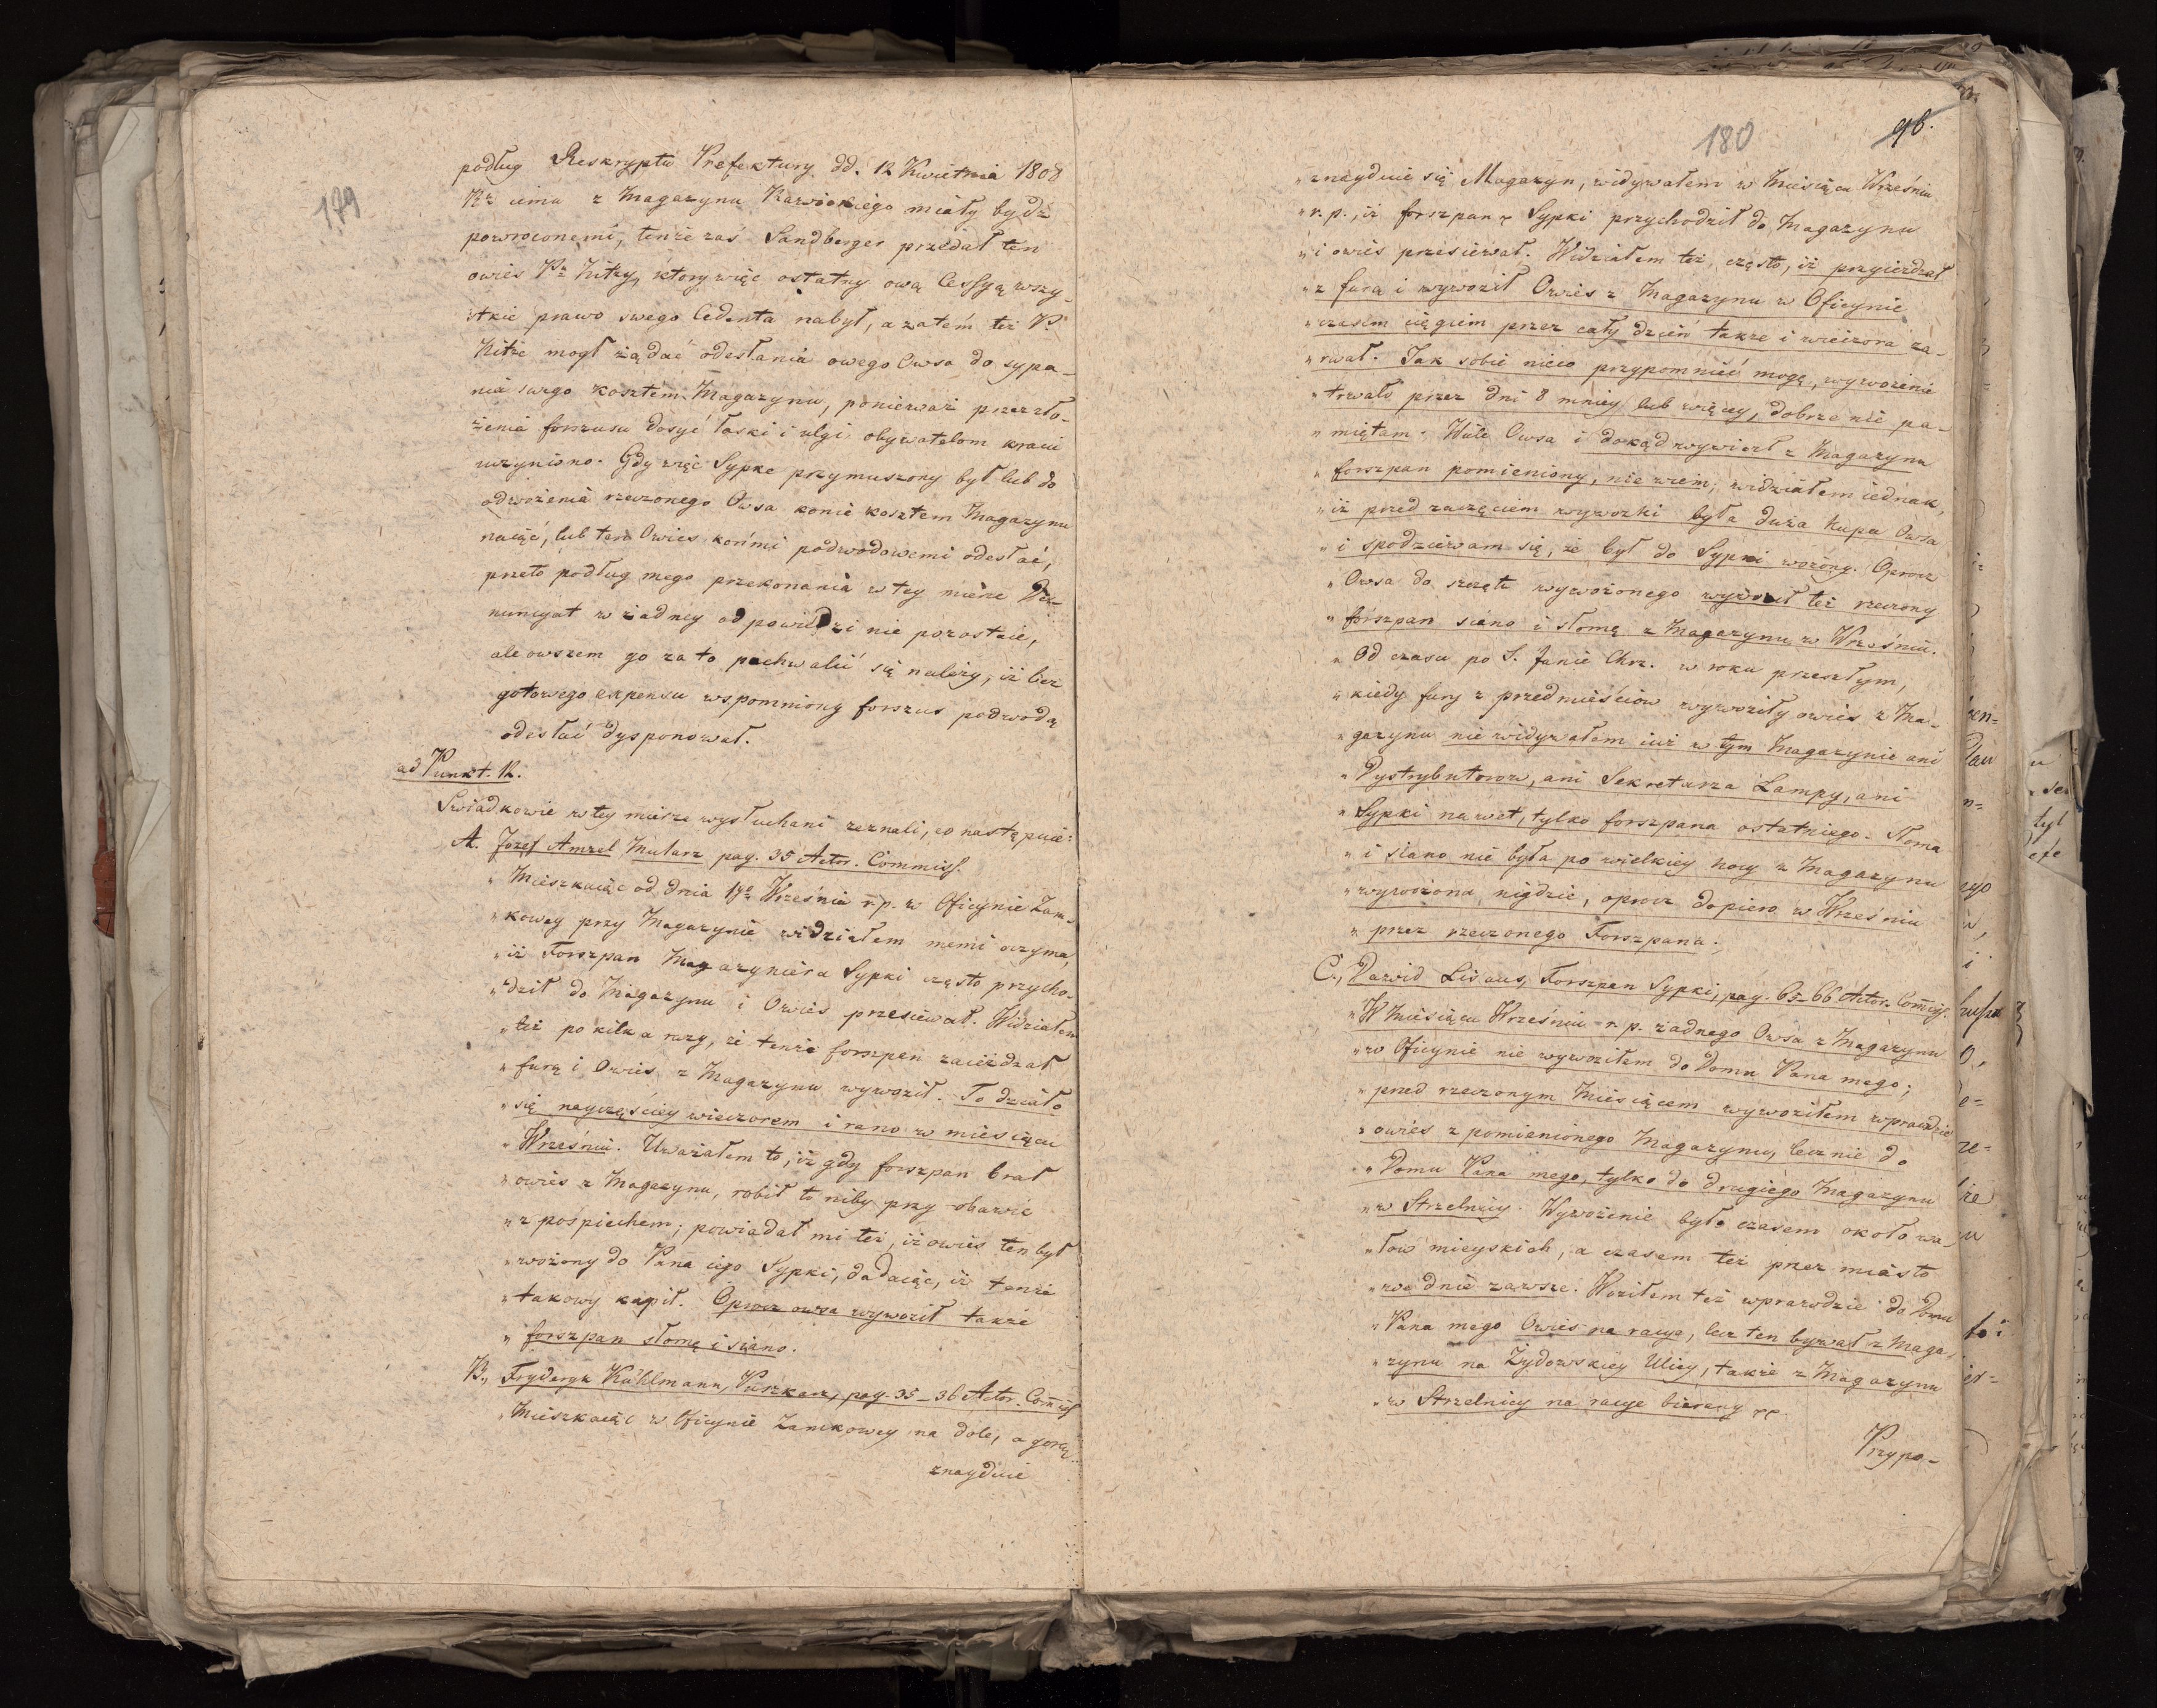 179
podług Reskryptu Prefektury dd. 12 Kwietnia 1808
Kr iemu z Magazynu Rawickiego miały bydź
powroconemi, tenże zaś Sandberger przedał ten
owies Pr Kitzy, ktory więc ostatny ową Cessyą wszy-
stkie prawo swego Cedenta nabył, a zatem też P.
Kitze mogł żądać odesłania owego Owsa do sypa-
nia swego kosztem Magazynu, ponieważ przez zło-
żenia forszusu dosyć łaski i ulgi obywatelom kraiu
uczyniono. Gdy więc Sypke przymuszony był lub do
odwożenia rzeczonego Owsa konie kosztem Magazynu
naiąć, lub ten Owies końmi podwodowemi odesłać,
przeto podług mego przekonania w tey mierze De-
nuncyat w żadney odpowiedzi nie pozostaie,
ale owszem go za to pochwalić się należy, iż bez
gotowego expensu wspomniony forszus podwodą
odesłać dysponował.
ad Punkt. 12.
Swiadkowie w tey mierze wysłuchani zeznali, co następuie:
A. Jozef Amzel Mularz pag. 35 Actor. Commiss.
„ Mieszkaiąc od dnia 1go Września r. p. w Oficynie Zam-
„ kowey przy Magazynie widziałem memi oczyma,
„ iż Forszpan Magazyniera Sypki często przycho-
„ dził do Magazynu i Owies przesiewał. Widziałem
„ też po kilka razy, że tenże forszpan zaieżdżał
„ furą i Owies z Magazynu wywoził. To działo
„ się nayczęściey wieczorem i rano w miesiącu
„ Wrześniu. Uważałem to, iż gdy forszpan brał
„ owies z Magazynu, robił to niby przy obawie
„ z pospiechem; powiadał mi też, iż owies ten był
„ wożony do Pana iego Sypki, dodaiąc, iż tenże
„ takowy kupił. Oprocz owsa wywoził także
„ forszpan słomę i siano.
B., Fryderyk Kühlmann, Puszkarz, pag. 35–36 Actor. Com̄iss
„ Mieszkaiąc w Oficynie Zamkowey na dole, a gorą
znayduie
180
96.
„ znayduie się Magazyn, widywałem w Miesiącu Wrześniu
„ r. p., iż forszpan Sypki przychodził do Magazynu
„ i owies przesiewał. Widziałem też, często, iż przyieżdżał
„ z furą i wywoził Owies z Magazynu w Oficynie
„ czasem ciągiem przez cały dzień także i wieczora za-
„ rwał. Jak sobie nieco przypomnieć mogę, wywożenie
„ trwało przez dni 8 mniey lub więcey, dobrze nie pa-
„ miętam. Wiele Owsa i dokąd wywiozł z Magazynu
„ forszpan pomieniony, nie wiem; widziałem iednak,
„ iż przed zaczęciem wywozki była duża kupa Owsa
„ i spodziewam się, że był do Sypki wożony. Oprocz
„ Owsa do szczętu wywożonego wywoził też rzeczony
„ forszpan siano i słomę z Magazynu w Wrześniu.
„ Od czasu po S. Janie Chrz. w roku przeszłym,
„ kiedy fury z przedmieściow wywoziły owies z Ma-
„ gazynu nie widywałem iuż w tym Magazynie ani
„ Dystrybutorow, ani Sekretarza Lampy, ani
„ Sypki nawet, tylko forszpana ostatniego. Słoma
„ i siano nie była po wielkiey nocy z Magazynu
„ wywożona nigdzie, oprocz dopiero w Wrześniu
„ przez rzeczonego Forszpana.
C., Dawid Lisaus, Forszpan Sypki, pag. 65–66 Actor. Com̄iss.
„ W Miesiącu Wrześniu r. p. żadnego Owsa z Magazynu
„ w Oficynie nie wywoziłem do Domu Pana mego;
„ przed rzeczonym Miesiącem wywoziłem wprawdzie
„ owies z pomienionego Magazynu, lecz nie do
„ Domu Pana mego, tylko do drugiego Magazynu
„ w Strzelnicy. Wywożenie było czasem około wa-
„ łow mieyskich, a czasem też przez miasto
„ we dnie zawsze. Woziłem też wprawdzie do Domu
„ Pana mego Owies na racye, lecz ten bywał z Maga-
„ zynu na Żydowskiey Ulicy, także z Magazynu
„ w Strzelnicy na racye bierany pp
Przypo-